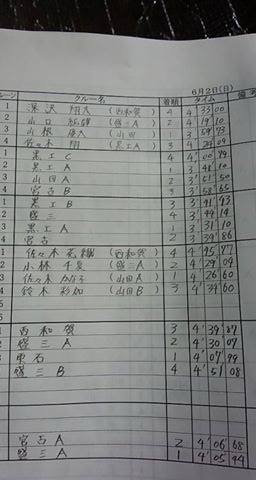 6月2日(日)
レーン クルー名 着順 タイム 備考
1 深沢 翔太 (西和賀) 4 4 33 00
2 山口 (盛三A) 2 4 19 10
3 山根 康人 (山田) 1 3 59 73
4 佐々木 翔 (黒工A) 3 4 29 09
1 黒工C 4 4' 00 79
2 黒工A 1 3 41 10
3 山田A 2 3' 51 50
4 宮古B 3 3' 58 65
1 黒工B 3 3' 41 93
2 盛三 4 3' 44 14
3 黒工A 1 3' 31
4 宮古 2 3' 39 66
1 佐々木 (西和賀) 4 4' 45 97
2 小林 千夏 (盛三A) 2 4' 29 09
3 佐々木 かなる (山田A) 1 4' 26 60
4 鈴木 彩加 (山田B) 3 4' 34 60
5
西和賀 3 4' 39 87
2 盛三A 2 4' 30 07
3 雫石 1 4' 07 99
4 盛三B 4 4' 51 08
宮古A 2 4' 06 68
盛三A 1 4' 05 94